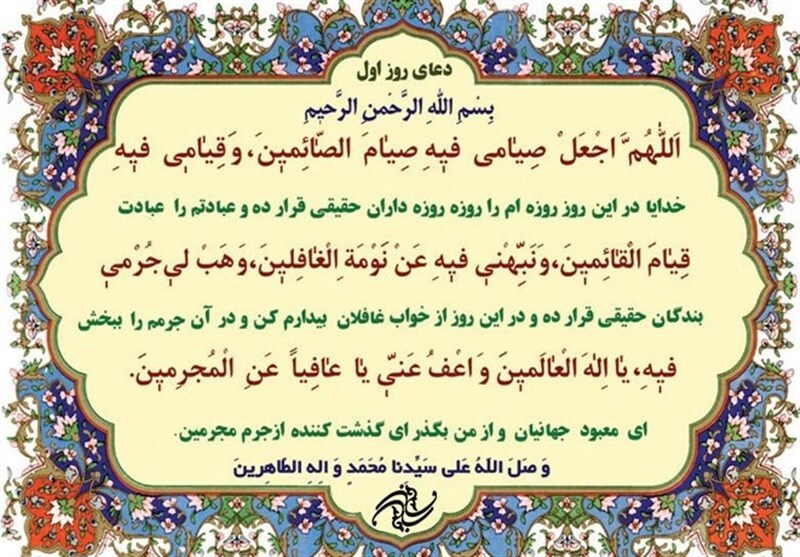 دعای روز اول
بِسْمِ اللهِ الرَّحْمنِ الرَّحیٖمِ
اَللّٰهُمَّ اجْعَلْ صِیٰامی فیٖهِ صِیٰامَ الصّٰائِمیٖنَ، وَقِیٰامیٖ فیٖهِ
خدایا در این روز روزه ام را روزه روزه داران حقیقی قرار ده و عبادتم را عبادت
قِیٰامَ الْقٰائِمیٖنَ، وَنَبِّهْنیٖ فیٖهِ عَنْ نَوْمَةِ الْغٰافِلیٖنَ، وَهَبْ لیٖ جُرْمیٖ
بندگان حقیقی قرار ده و در این روز از خواب غافلان بیدارم کن و در آن جرمم را ببخش
فیٖهِ، یٰا اِلٰهَ الْعٰالَمیٖنَ وَ اعْفُ عَنیّٖ یٰا عٰافِیاً عَنِ الْمُجرِمیٖنَ.
ای معبود جهانیان و از من بگذر ای گذشت کننده ازجرم مجرمین.
وَ صَلَ اللّهُ عَلی سَیِّدنا مُحَمَدٍ وَ الِهِ الطّاهِرینَ